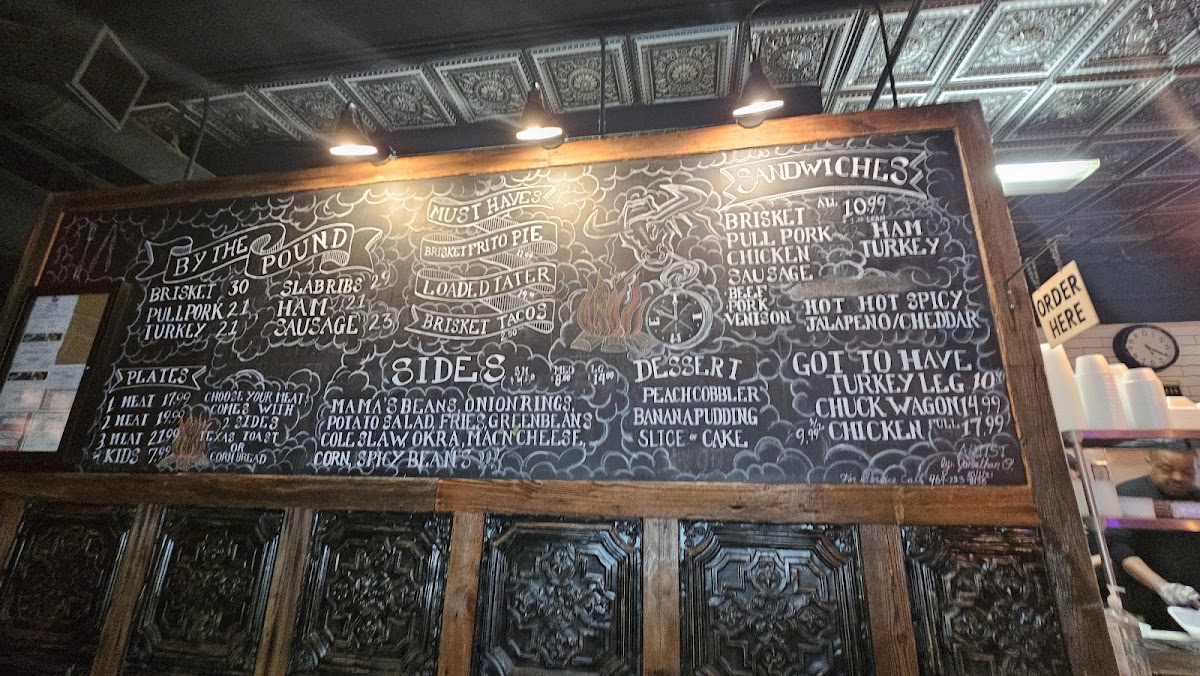 BY THE POUND
BRISKET 30
PULL PORK 21
TURKEY 21
SLAB RIBS 29
HAM 21
SAUSAGE 23
PLATES
1 MEAT 17.99
2 MEAT 19.99
3 MEAT 21.99
KIDS 7.99
CHOOSE YOUR MEAT
COMES WITH
2 SIDES
TEXAS TOAST
OR
CORN BREAD
MUST HAVES
BRISKET FRITO PIE
LOADED TATER
BRISKET TACOS
SIDES
MED 8.00
LG 14.00
MAMA'S BEANS, ONION RINGS,
POTATO SALAD, FRIES, GREEN BEANS
COLE SLAW, OKRA, MAC N CHEESE,
CORN, SPICY BEANS
DESSERT
PEACH COBBLER
BANANA PUDDING
SLICE OF CAKE
SANDWICHES
ALL 10.99
BRISKET
PULL PORK
CHICKEN
SAUSAGE
BEEF
PORK
VENISON
HAM
TURKEY
HOT HOT SPICY
JALAPENO/CHEDDAR
GOT TO HAVE
TURKEY LEG
CHUCK WAGON 14.99
9.99 CHICKEN FULL 17.99
ORDER
HERE